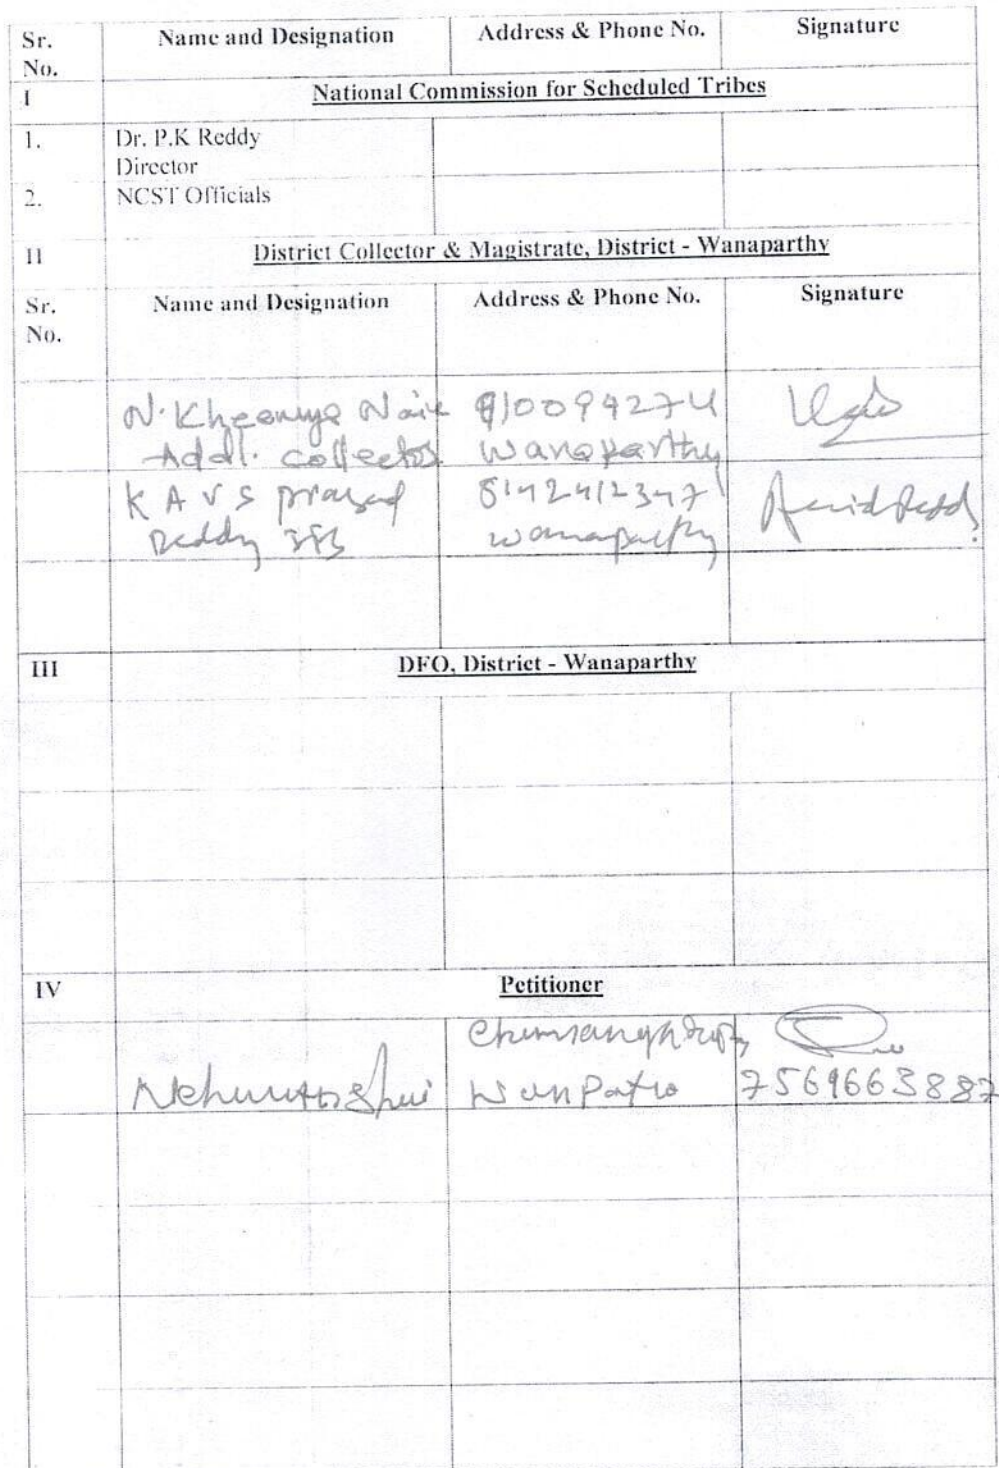 Sr. No. Name and Designation Address & Phone No. Signature
I National Commission for Scheduled Tribes
1. Dr. P.K Reddy
Director
2. NCST Officials
II District Collector & Magistrate, District - Wanaparthy
Sr. No. Name and Designation Address & Phone No. Signature
N. Kheemya Naik 910094274
Addl. collector Wanaparthy
K A V S prasad 8142412347
Reddy wanaparthy
III DFO, District - Wanaparthy
IV Petitioner
7569663887